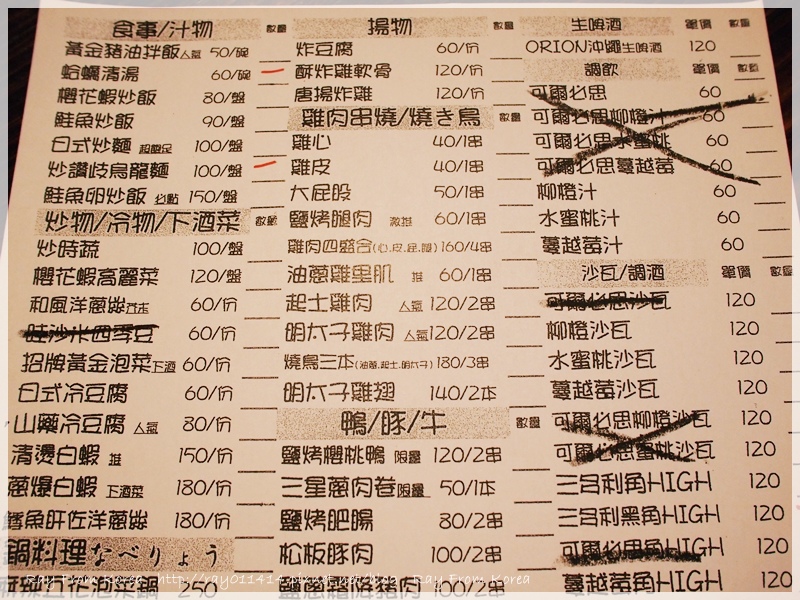 食事/汁物 數量
黃金豬油拌飯人氣 50/碗
蛤蠣清湯 60/碗
櫻花蝦炒飯 80/盤
鮭魚炒飯 90/盤
日式炒麵 超滿足 100/盤
炒讚岐烏龍麵 100/盤
鮭魚卵炒飯 必點 150/盤
炒物/冷物/下酒菜 數量
炒時蔬 100/盤
櫻花蝦高麗菜 120/盤
和風洋蔥絲芥末 60/份
哇沙米四季豆 60/份
招牌黃金泡菜下酒 60/份
日式冷豆腐 60/份
山藥冷豆腐 人氣 80/份
清燙白蝦 推 150/份
蔥爆白蝦 下酒菜 180/份
鱈魚肝佐洋蔥絲 180/份
鍋料理なべりょう
250
揚物 數量
炸豆腐 60/份
酥炸雞軟骨 120/份
唐揚炸雞 120/份
雞肉串燒/燒き鳥 數量
雞心 40/1串
雞皮 40/1串
大屁股 50/1串
鹽烤腿肉 激推 60/1串
雞肉四盛合(心.皮.屁.腿) 160/4串
油蔥雞里肌 推 60/1串
起士雞肉 人氣 120/2串
明太子雞肉 人氣 120/2串
燒鳥三本(油蔥.起士.明太子) 180/3串
明太子雞翅 140/2本
鴨/豚/牛 數量
鹽烤櫻桃鴨 限量 120/2串
三星蔥肉卷限量 50/1本
鹽烤肥腸 80/2串
松板豚肉 100/2串
100/2串
生啤酒 單價 數量
ORION沖繩生啤酒 120
調飲 單價 數量
可爾必思 60
可爾必思柳橙汁 60
可爾必思水蜜桃 60
可爾必思蔓越莓 60
柳橙汁 60
水蜜桃汁 60
蔓越莓汁 60
沙瓦/調酒 單價 數量
可爾必思沙瓦 120
柳橙沙瓦 120
水蜜桃沙瓦 120
蔓越莓沙瓦 120
可爾必思柳橙沙瓦 120
可爾必思蜜桃沙瓦 120
三多利角HIGH 120
三多利黑角HIGH 120
可爾必思角HIGH 120
蔓越莓角HIGH 120
Ray From Korea http://ray011414.pixnet.net/blog Ray From Korea